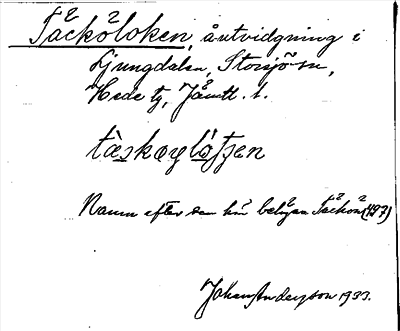 Täcköloken, åutvidgning i
Ljungdalen, Storsjö sn,
Hede tg, Jämtl. l.
Namn efter den här belägna Täckön (497)
Johan Anderson 1933.